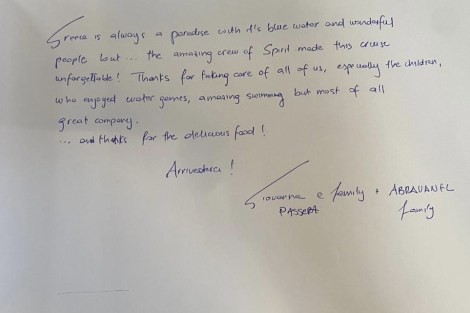 Greece is always a paradise with it's blue water and wonderful
people but ... the amazing crew of Spirit made this cruise
unforgettable! Thanks for taking care of all of us, especially the children,
who enjoyed water games, amazing swimming but most of all
great company.
... and thanks for the delicious food!
Arrivederci!
Giovanna e family + ABRAVANEL
PASSERA family